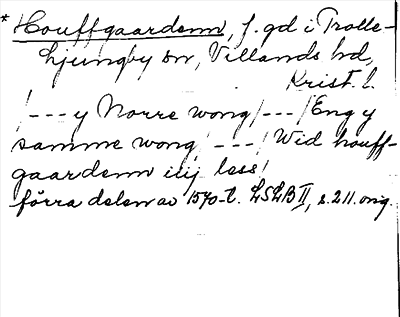 * Houffgaardenn, f. gd i Trolle-
Ljungby sn, Villands hd,
Krist. l.
/---y Norre wong/---/Eng y
samme wong/---/Wid houff-
gaardenn iiij less/
förra delen av 1570-t. LSLB II, s. 211. orig.